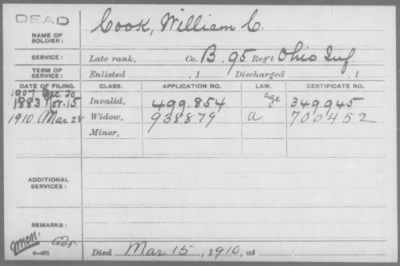 DEAD
NAME OF SOLDIER: Cook, William C.
SERVICE: Late rank, Co. B. 95 Reg't Ohio Inf
TERM OF SERVICE: Enlisted , 1 Discharged , 1
DATE OF FILING. CLASS. APPLICATION NO. LAW. CERTIFICATE NO.
1907 Dec 30
1883 Nov. 15 Invalid, 499.854 age 349,945
1910 Mar 28 Widow, 938879 a 700452
Minor,
ADDITIONAL SERVICES:
REMARKS:
Died Mar. 15, 1910, at